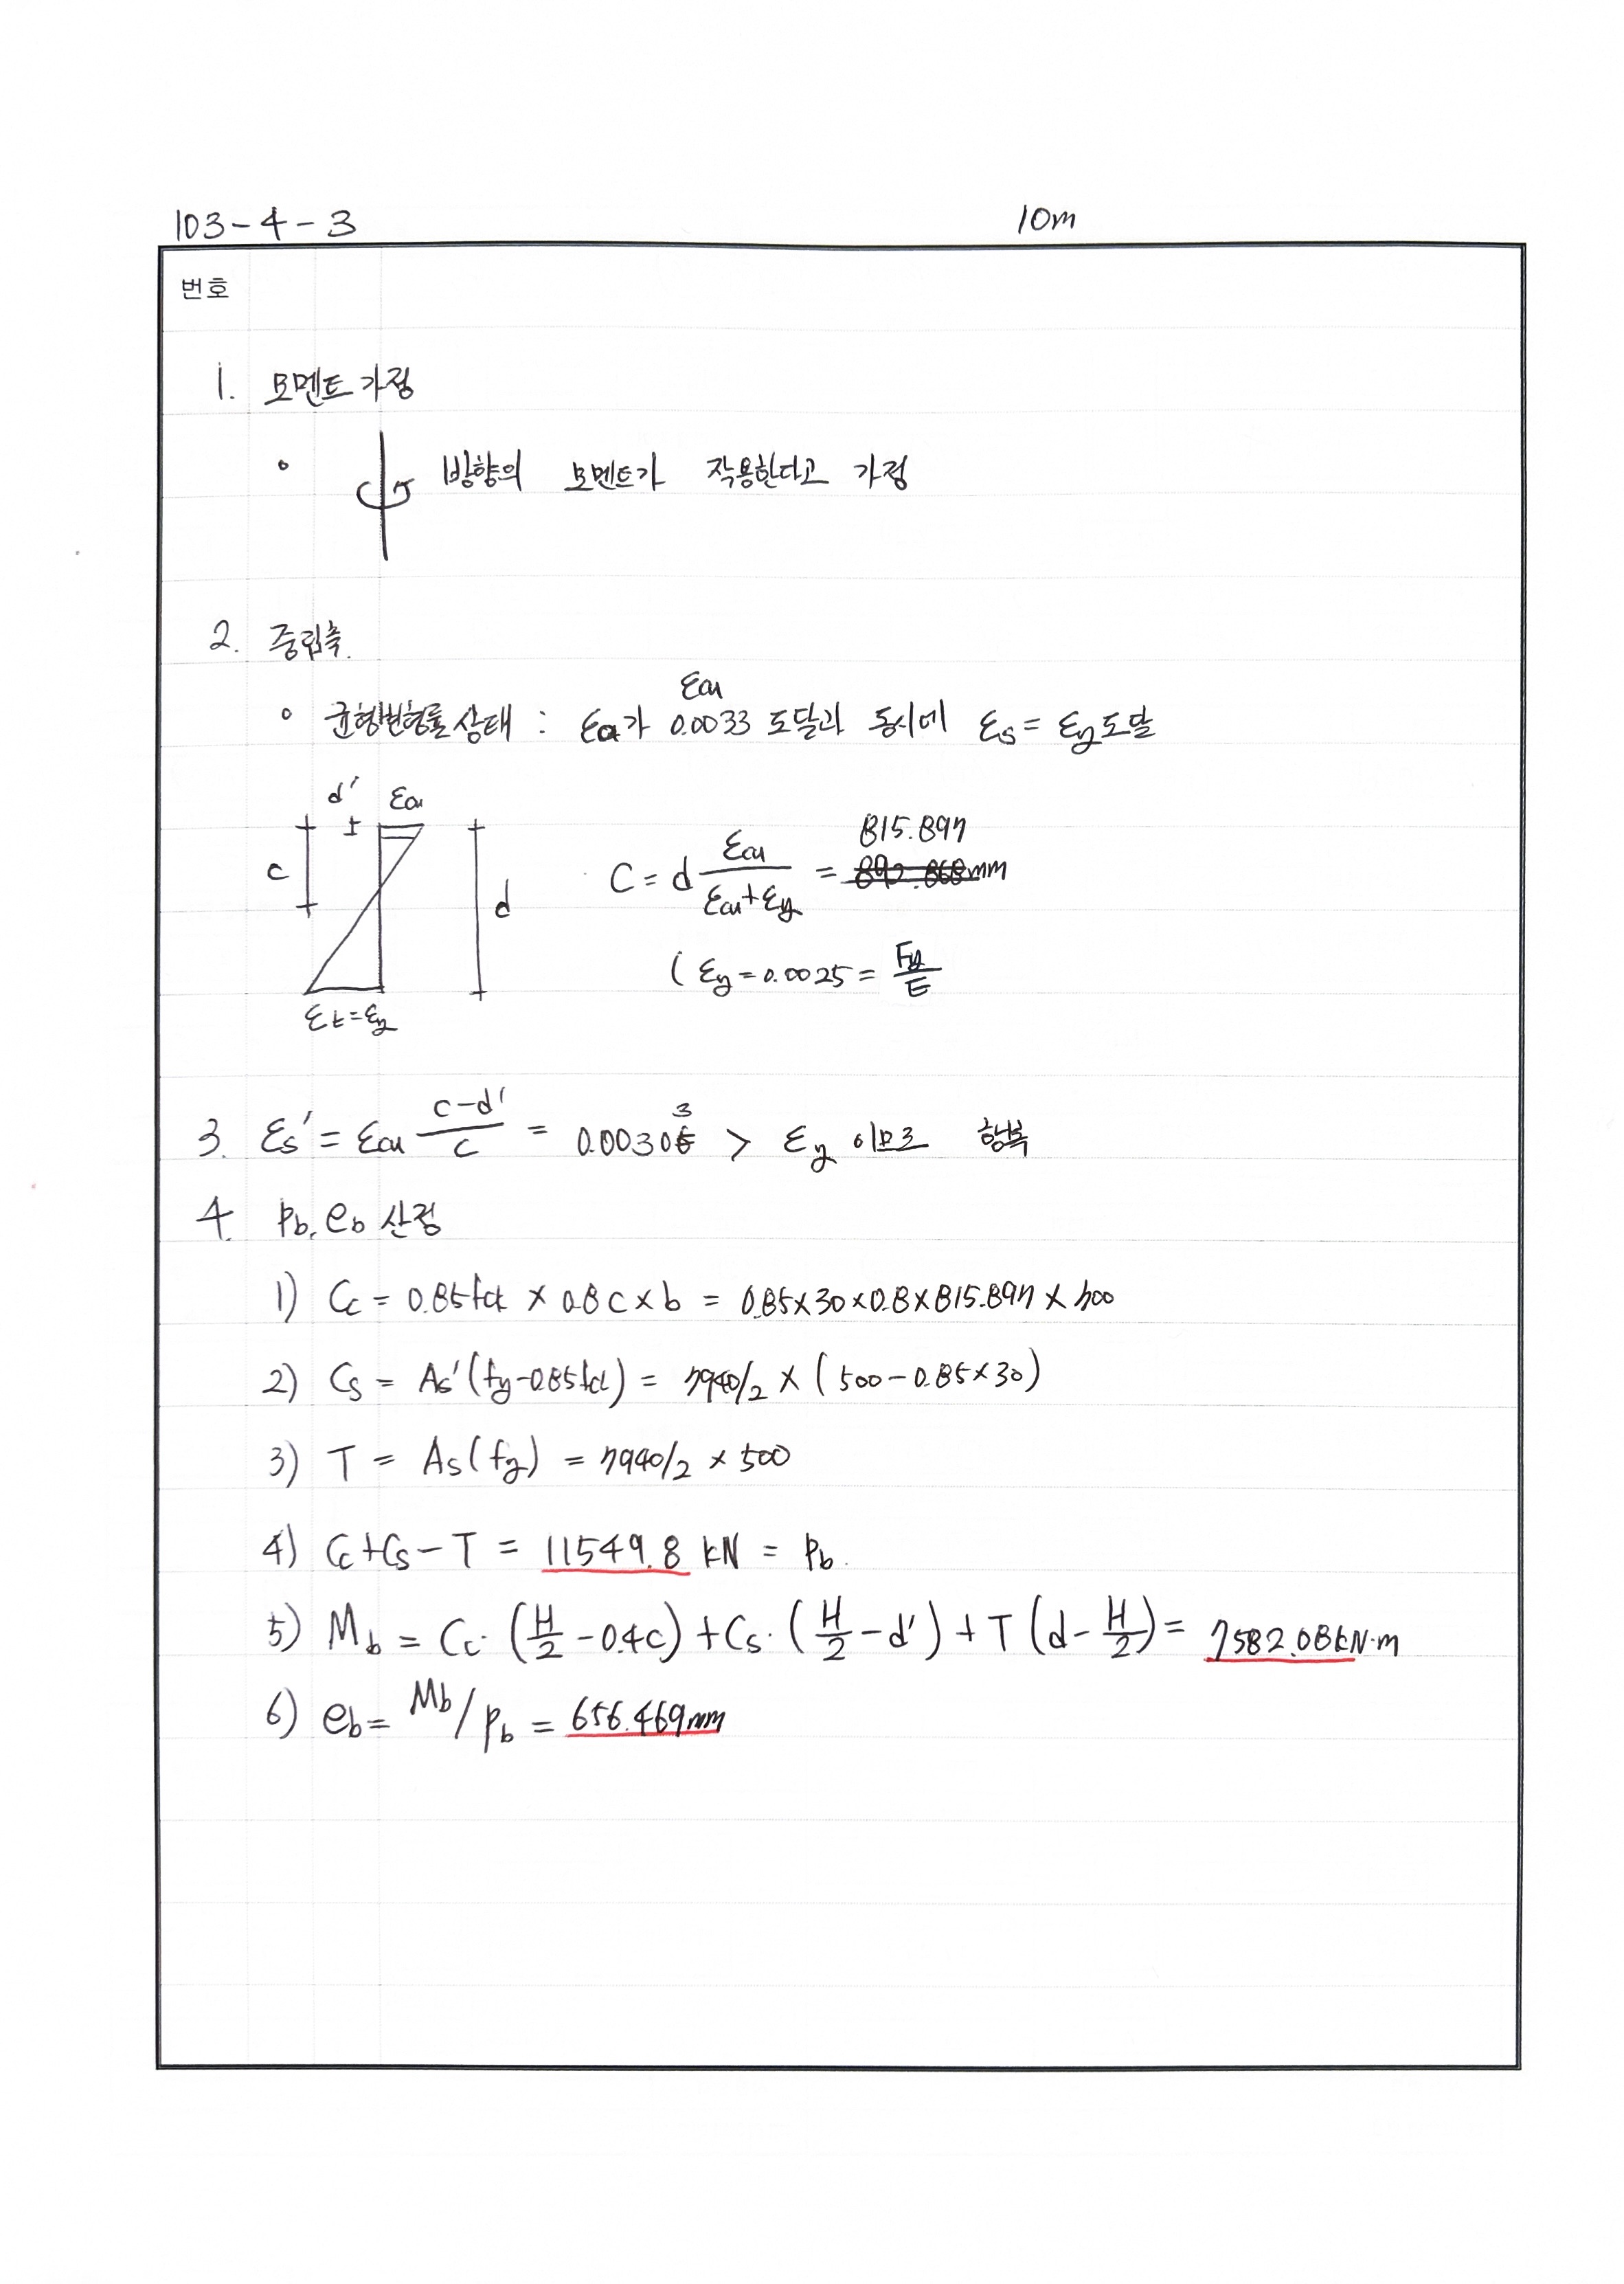 103-4-3 10m
번호
1. 모멘트 가정
∘ 방향의 모멘트가 작용한다고 가정
2. 중립축.
εcu
∘ 균형변형률 상태 : εcu가 0.0033 도달과 동시에 εs = εy 도달
d' εcu
c d
εt=εy
C = d εcu/(εcu+εy) = 815.897 mm
( εy = 0.0025 = Fy/E
3. εs' = εcu (c-d')/c = 0.00303 > εy 이므로 항복
4. Pb, eb 산정
1) Cc = 0.85fck × 0.8c × b = 0.85×30×0.8×815.897 × 700
2) Cs = As'(fy-0.85fck) = 7940/2 × (500-0.85×30)
3) T = As(fy) = 7940/2 × 500
4) Cc+Cs-T = 11549.8 kN = Pb.
5) Mb = Cc·(H/2-0.4c)+Cs·(H/2-d')+T(d-H/2) = 7582.08kN·m
6) eb = Mb/Pb = 656.469mm